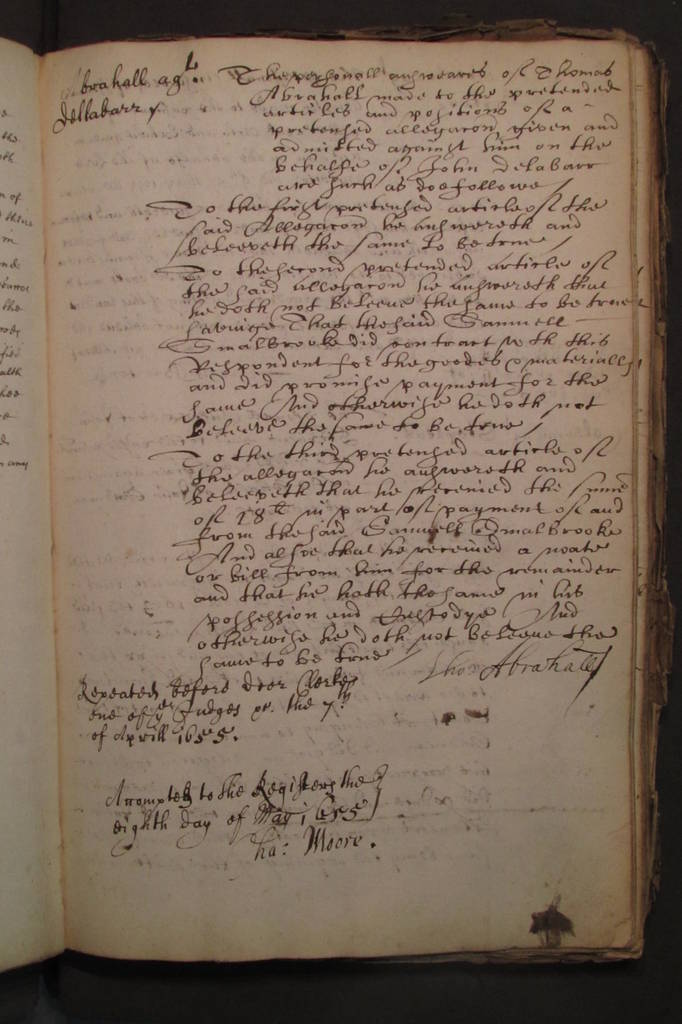 Abrahall agt.
Dellabarr
The personall answeares of Thomas
Abrahall made to the pretended
articles and positions of a
pretensed allegacon given and
admitted against him on the
behalfe of John Delabarr
are such as doe followe/
To the first pretensed article of the
said Allegacon he answereth and
beleeveth the same to be true/
To the second pretended article of
the said allegacon he answereth that
he doth not beleeve the same to be true
saveinge That the said Samuell
Smalbrooke did contract with this
Respondent for the goodes materiall
and did promise payment for the
same And otherwise he doth not
beleeve the same to be true/
To the third pretensed article of
the allegacon he answereth and
beleeveth that he received the summe
of 18li in part of payment of and
from the said Samuell Smalbrooke
And alsoe that he received a noate
or bill from him for the remainder
and that he hath the same in his
possession and Custodye And
otherwise he doth not beleeve the
same to be true/
Tho: Abrahall/
Repeated before doctor Clerke
one of ye Judges the 7th
of Aprill 1655.
Attompted to the Registers the
eighth day of May 1655
Tho: Moore.